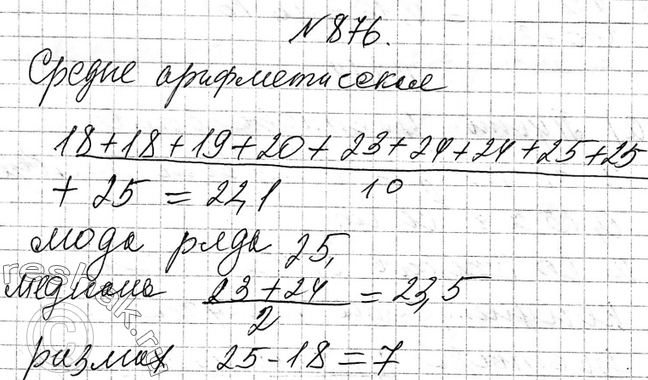 №876.
Средне арифметисекая
18+18+19+20+23+24+24+25+25
+25 = 22,1
10
мода ряда 25,
медиана 23+24 = 23,5
2
размах 25-18=7